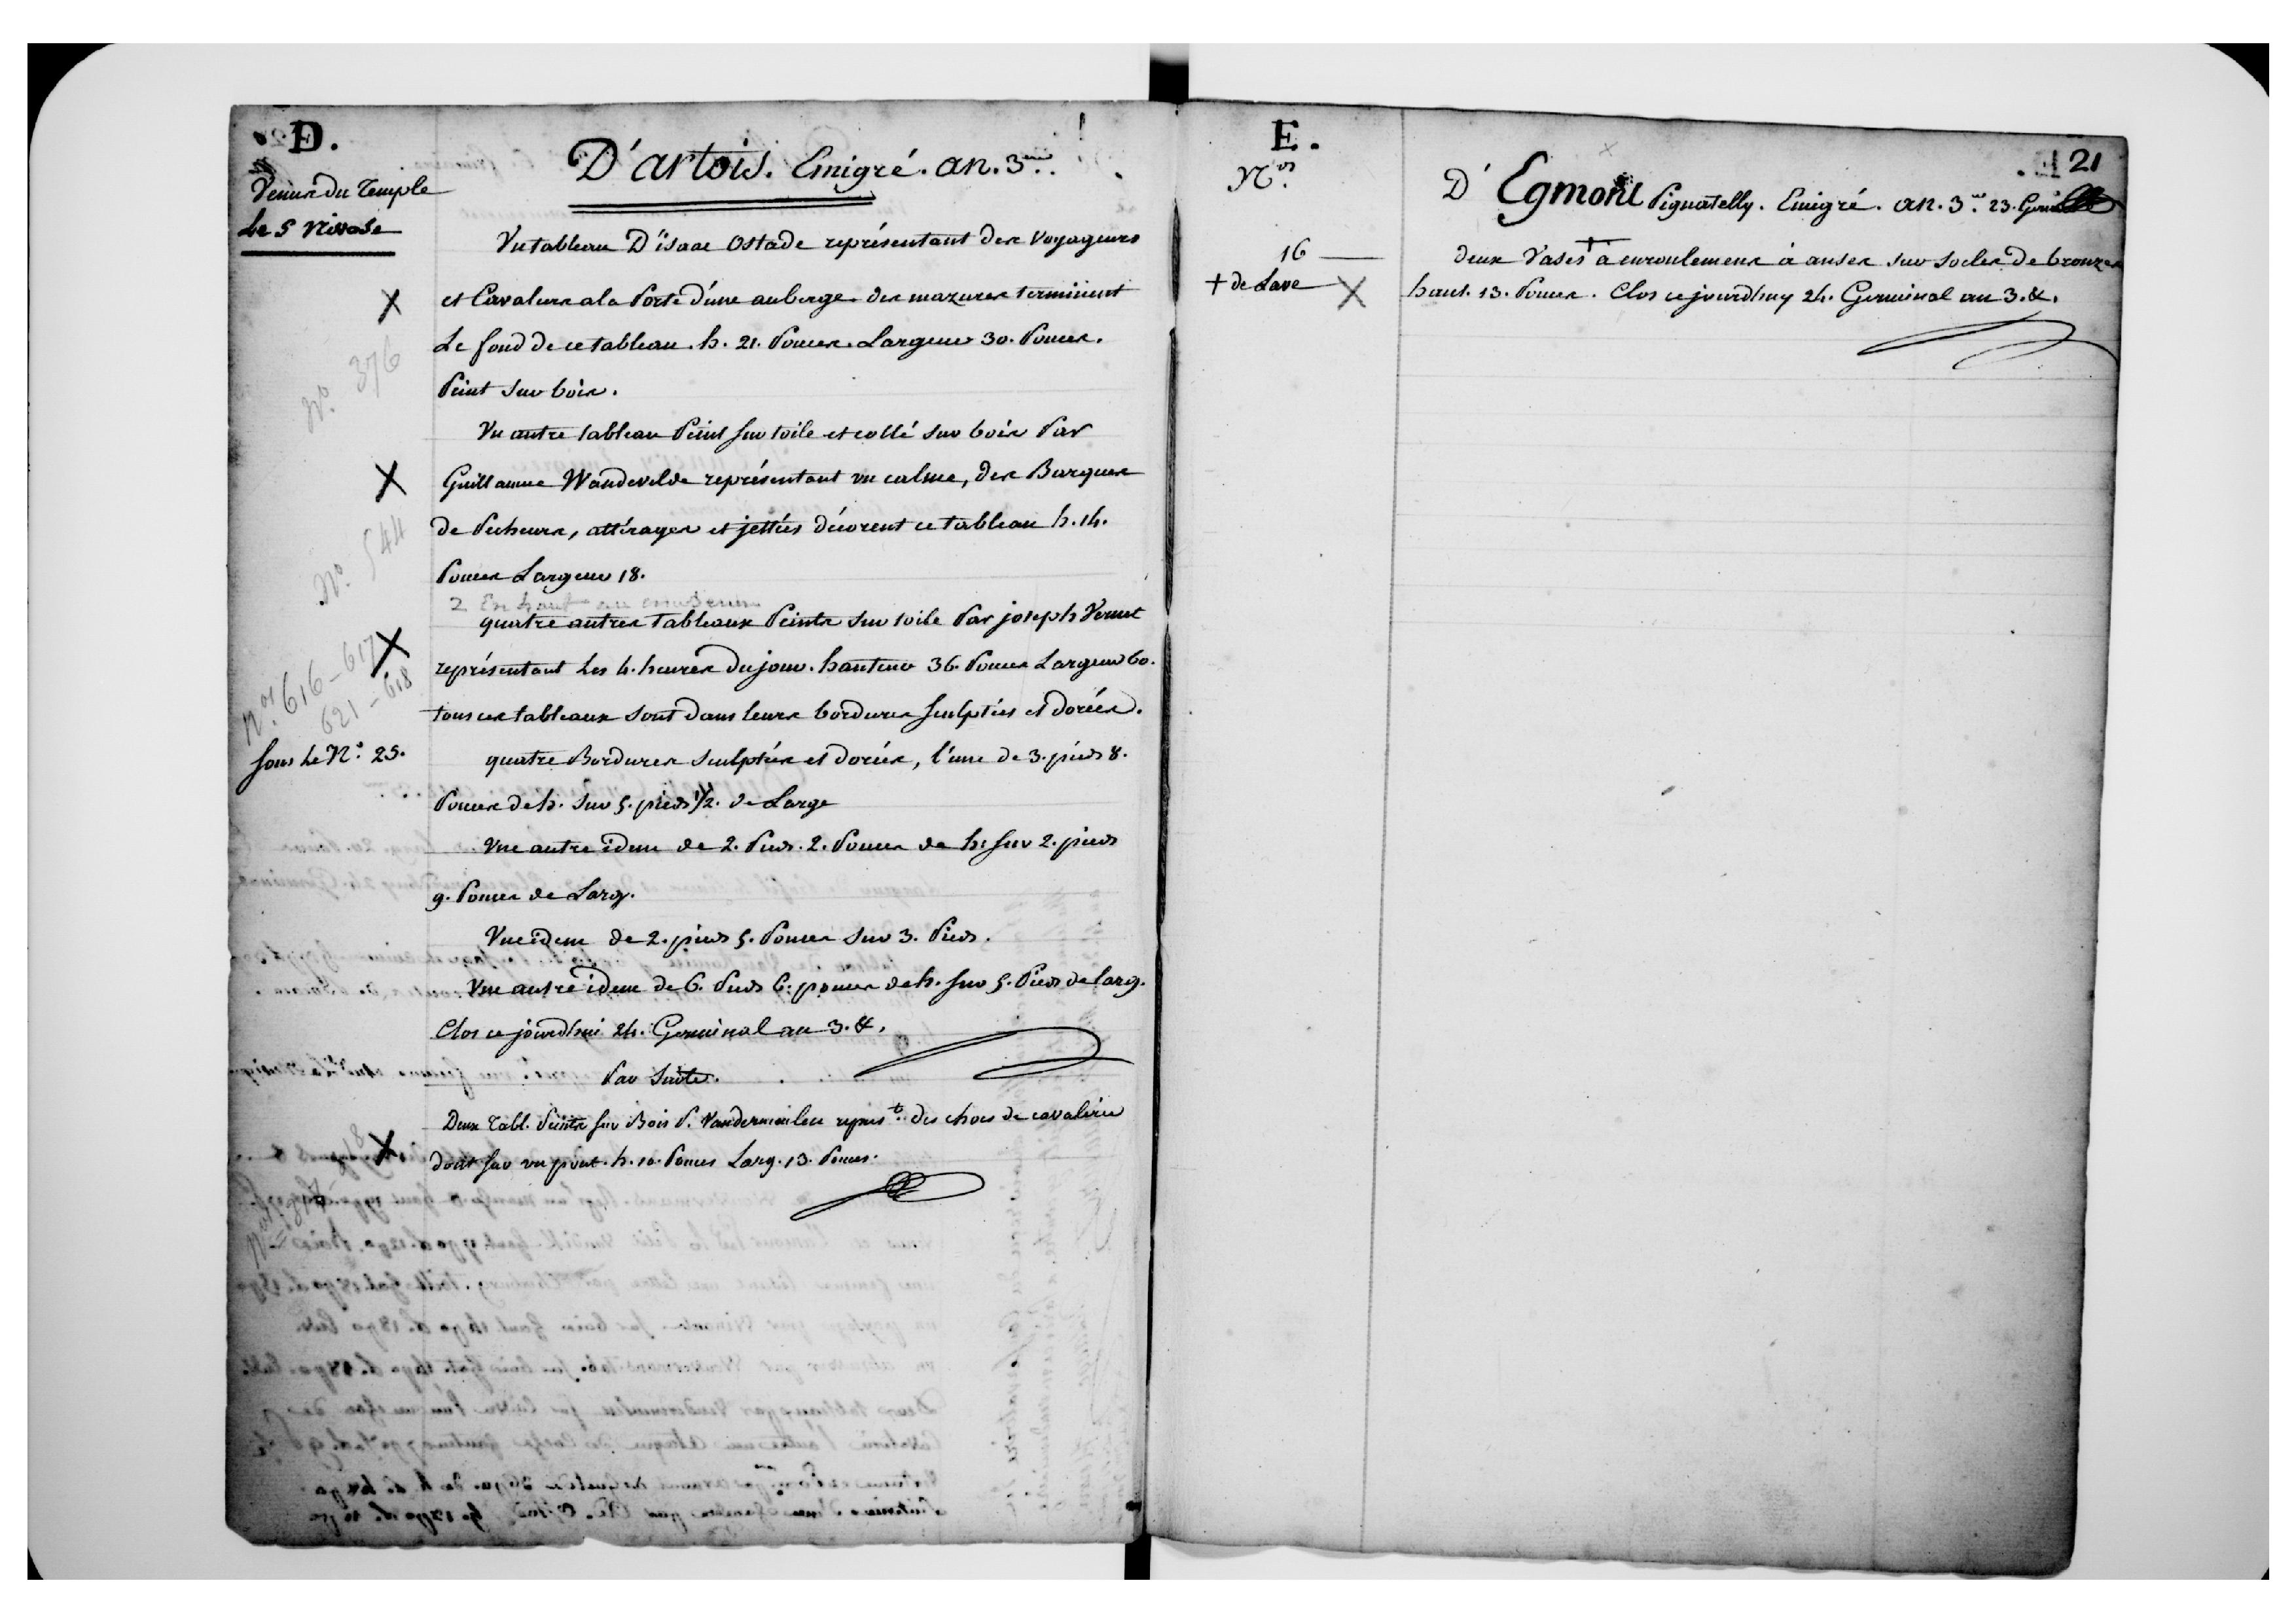 D.
Venus du Temple
Le 5 Nivose
D'artois. Emigré. an. 3.me
Un tableau D'isaac Ostade représentant des Voyageurs
et Cavaliers a la Porte d'une auberge des mazures terminent
Le fond de ce tableau. h. 21. Pouces. Largeur 30. Pouces.
Peint sur bois.
N° 376
Un autre tableau Peint sur toile et collé sur bois Par
Guillaume Wandevelde représentant un calme, des Barques
de Pecheurs, attérages et jettées décorent ce tableau h. 14.
Pouces Largeur 18.
N° 544
2 En haut au
quatre autres Tableaux Peints sur toile Par joseph Vernet
représentant Les 4. heures du jour. hauteur 36. Pouces Largeur 60.
tous ces tableaux sont dans leurs bordures sculptées et dorées.
Nos 616 - 617
621 - 618
Sous Le N° 25.
quatre Bordures sculptées et dorées, l'une de 3. pieds 8.
Pouces de h. sur 5. pieds 1/2. de Large
Une autre idem de 2. Pieds. 2. Pouces de h. sur 2. pieds
9. Pouces de Larg.
Une idem de 2. pieds 5. Pouces sur 3. Pieds.
Une autre idem de 6. Pieds 6. pouces de h. sur 5. Pieds de larg.
Clos ce jourd'hui 24. Germinal an 3. &.
Par Suite.
Deux Tabl. Peints sur Bois P. Vandermeulen repres.t des chocs de cavalerie
dont sur un pont. h. 10. Pouces Larg. 13. Pouces.
E.
Nos.
21
D'Egmont Pignatelly. Emigré. an. 3.me 23.
16
deux Vases + à enroulemens à anses sur socles de bronzes
+ de Lave
haut. 13. Pouces. Clos ce jourd'huy 24. Germinal an 3. &.